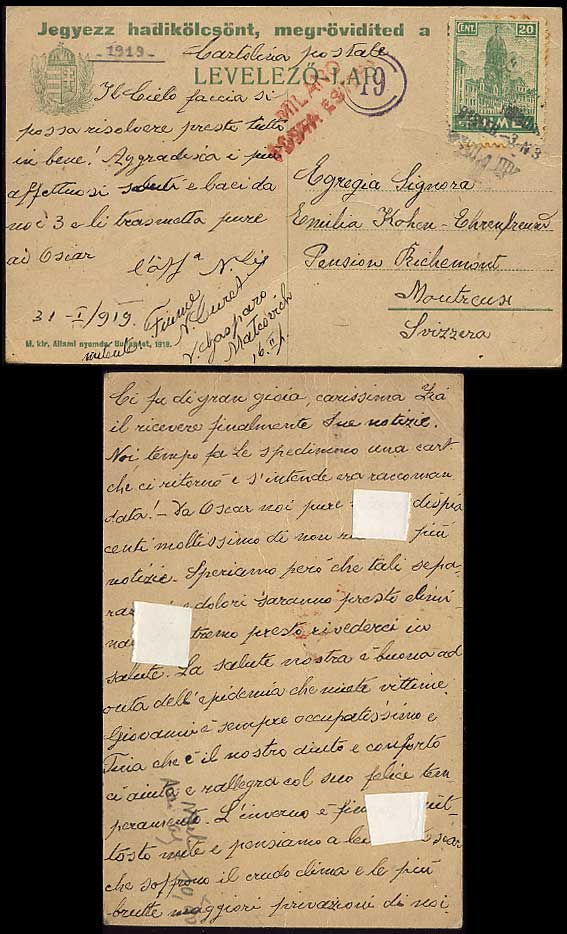 Jegyezz hadikölcsönt, megrövidíted a
-1919-
Cartolina postale
LEVELEZŐ-LAP
19
MILANO
POSTA ES
CENT. 20
FIUME
Il Cielo faccia si
possa risolvere presto tutto
in bene! Aggradisca i più
affettuosi saluti e baci da
noi 3 e li trasmetta pure
ai Oscar
31-I/919. Fiume
V. Gasparo
Matcovich
16 II
M. kir. Állami nyomda, Budapest, 1918.
Egregia Signora
Emilia Kohen-Ehrenfreund
Pension Richemont
Montreux
Svizzera
Ci fu di gran gioia, carissima Zia
il ricevere finalmente Sue notizie.
Noi tempo fa Le spedimmo una cart.
che ci ritornò e s'intende era raccoman
data! - Da Oscar noi pure dispia
centi moltissimo di non più
notizie. Speriamo però che tali sepa-
e dolori saranno presto elimi-
presto rivederci in
salute. La salute nostra è buona ad
onta dell'epidemia che miete vittime
Giovanni è sempre occupatissimo e
Tina che è il nostro aiuto e conforto
ci aiuta e rallegra col suo felice tem
peramento. L'inverno è
tosto mite e pensiamo a
che soffrono il crudo clima e le più
brutte maggiori privazioni di noi.